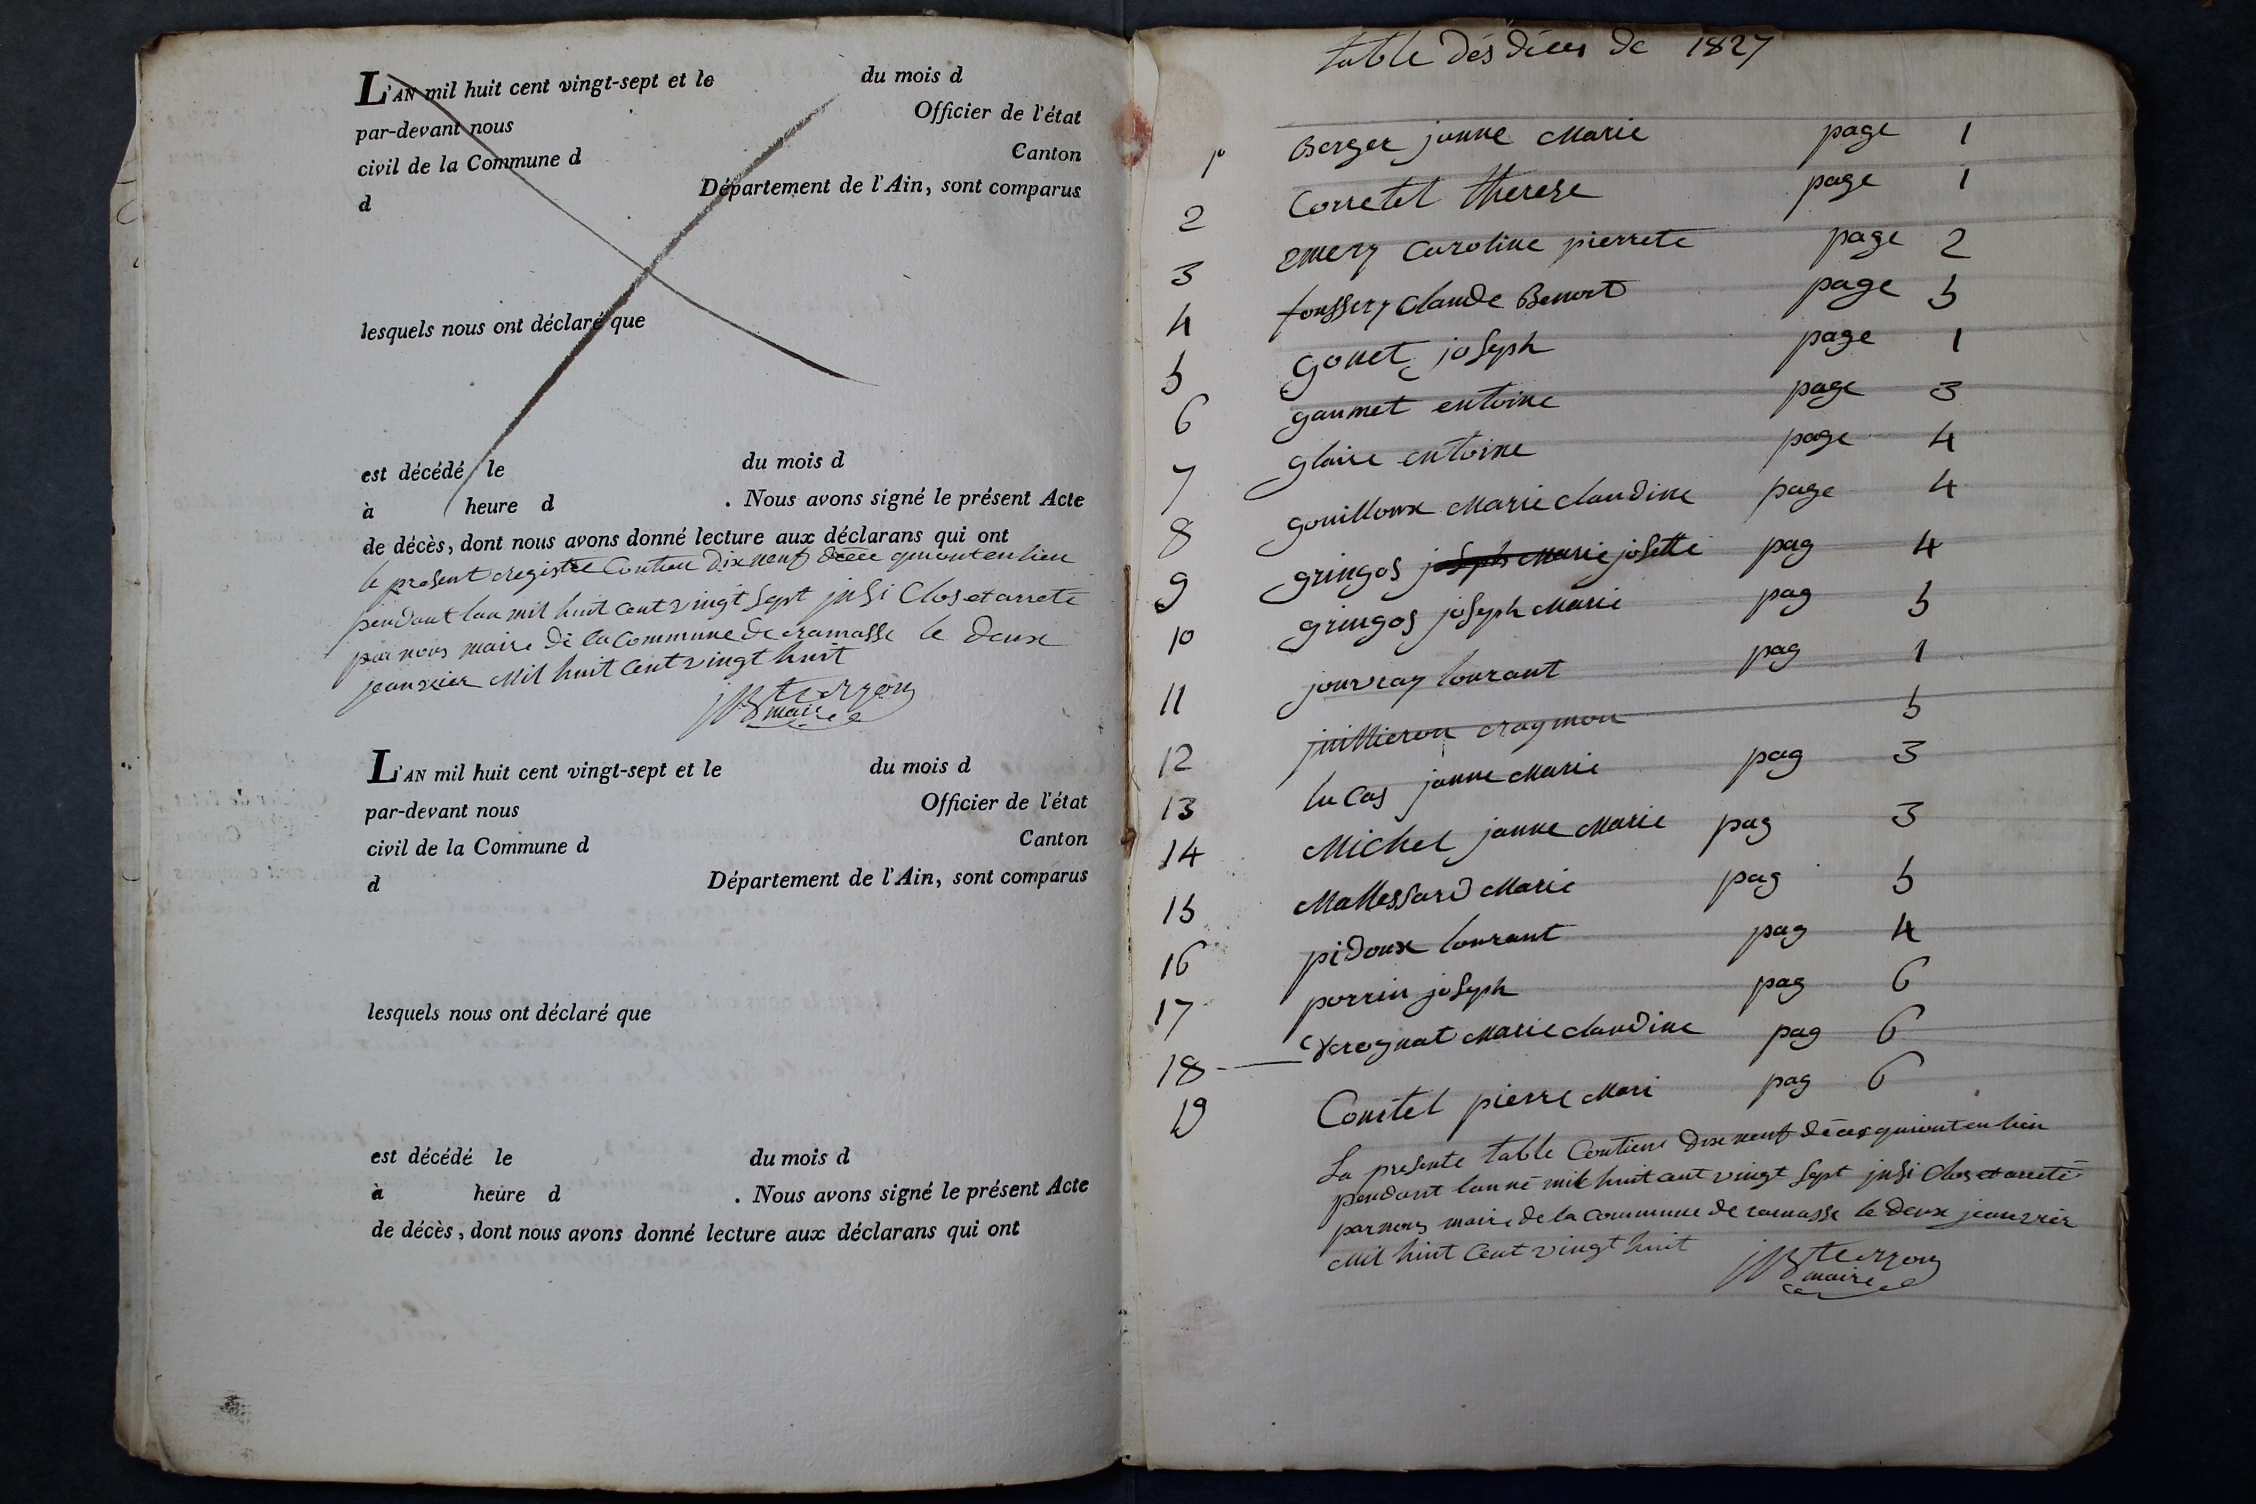 L'AN mil huit cent vingt-sept et le du mois d
par-devant nous Officier de l'état
civil de la Commune d Canton
d Département de l'Ain, sont comparus
lesquels nous ont déclaré que
est décédé le du mois d
à heure d . Nous avons signé le présent Acte
de décès, dont nous avons donné lecture aux déclarans qui ont
le present registre Contien dix neuf qui ont eu lieu
pendant lan mil huit cent vingt sept Clos et arreté
par nous maire de la commune de ramasse le deux
jeanvier mil huit cent vingt huit
maire
L'AN mil huit cent vingt-sept et le du mois d
par-devant nous Officier de l'état
civil de la Commune d Canton
d Département de l'Ain, sont comparus
lesquels nous ont déclaré que
est décédé le du mois d
à heure d . Nous avons signé le présent Acte
de décès, dont nous avons donné lecture aux déclarans qui ont
table dés déces de 1827
1 Berger janne Marie page 1
2 Corretel therese page 1
3 emery Caroline pierrete page 2
4 foussery Claude Benoit page 5
5 gonet joseph page 1
6 gaumet entoine page 3
7 glaire entoine page 4
8 gouilloux Marie claudine page 4
9 gringos josette pag 4
10 gringos joseph Marie pag 5
11 jouvray lourant pag 1
12 juillieron raymon 5
13 lucas janne Marie pag 3
14 Michel janne Marie pag 3
15 Mallessard Marie pag 5
16 pidoux lourant pag 4
17 perrin joseph pag 6
18 Marie claudine pag 6
19 pierre Mari pag 6
La presente table Contient dix neuf déces qui ont eu lieu
pendant lanné mil huit cent vingt sept Clos et arreté
par nous maire de la commune de ramasse le deux jeanvier
mil huit Cent vingt huit
maire